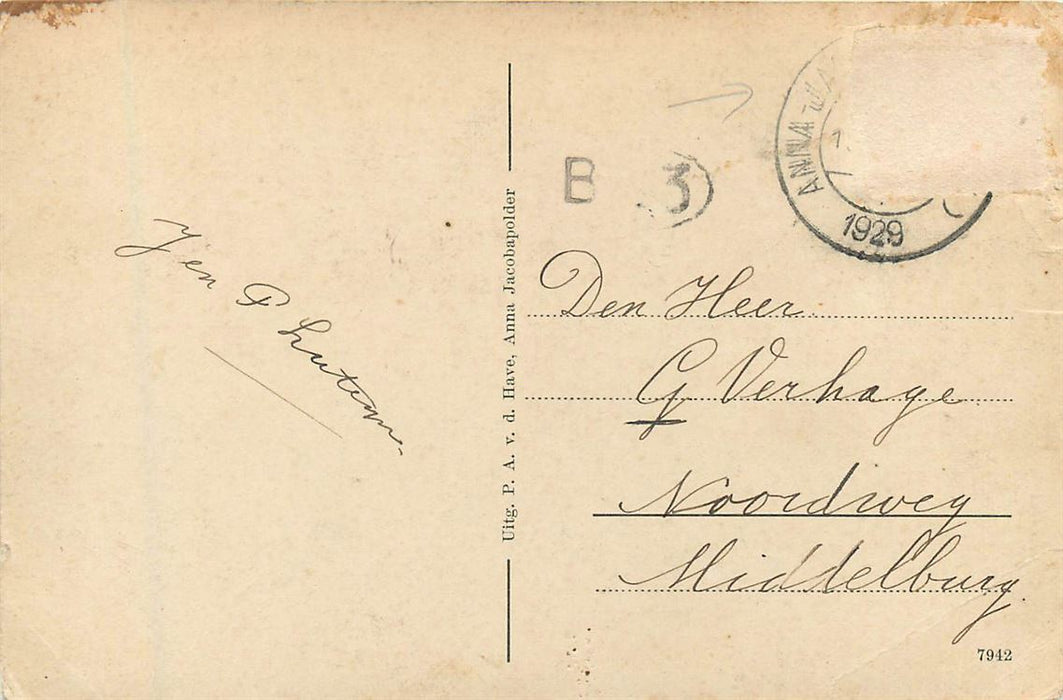 J en P
Uitg. P. A. v. d. Have, Anna Jacobapolder
B 3
ANNA JA
1929
Den Heer
G Verhage
Noordweg
Middelburg.
7942